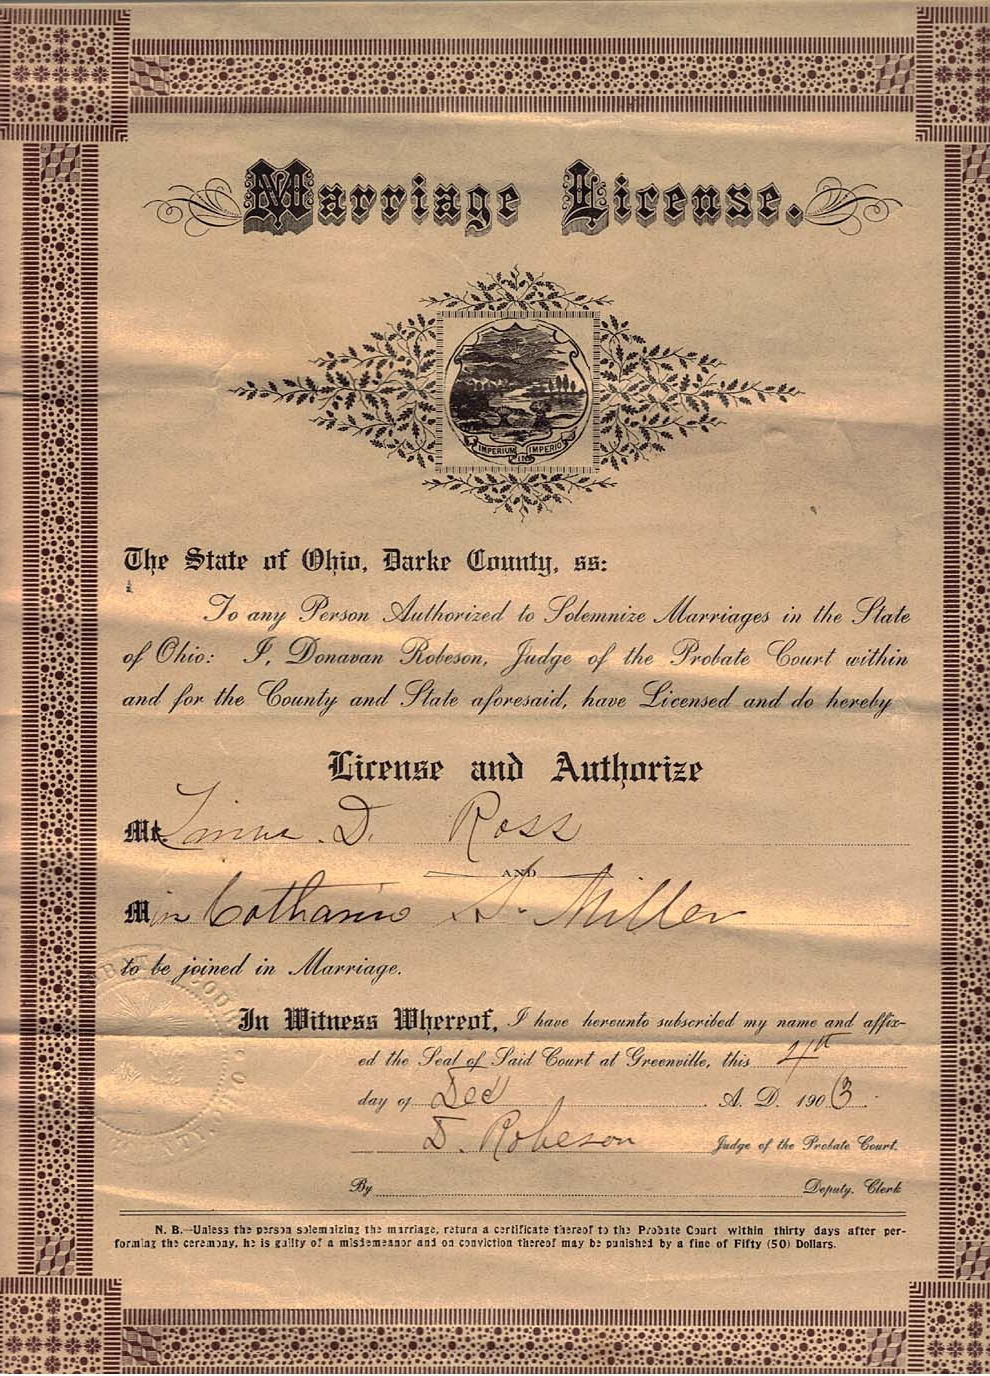 Marriage License.
IMPERIUM IN IMPERIO
The State of Ohio, Darke County, ss:
To any Person Authorized to Solemnize Marriages in the State
of Ohio: I, Donavan Robeson, Judge of the Probate Court within
and for the County and State aforesaid, have Licensed and do hereby
License and Authorize
Mr. D. Ross
AND
M S. Miller
to be joined in Marriage.
In Witness Whereof, I have hereunto subscribed my name and affix-
ed the Seal of Said Court at Greenville, this 4th
day of Dec A. D. 1903
D. Robeson Judge of the Probate Court.
By Deputy. Clerk
N. B.—Unless the person solemnizing the marriage, return a certificate thereof to the Probate Court within thirty days after per-
forming the ceremony, he is guilty of a misdemeanor and on conviction thereof may be punished by a fine of Fifty (50) Dollars.